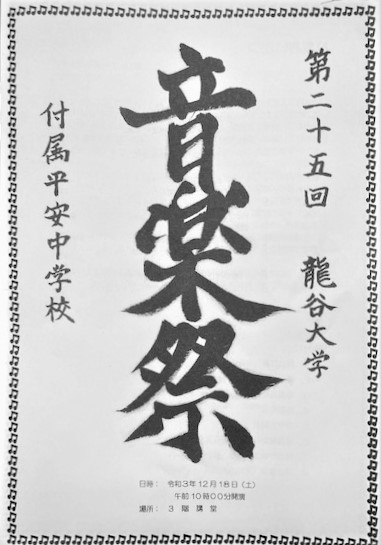 第二十五回 龍谷大学
付属平安中学校
音楽祭
日時： 令和3年12月18日（土）
午前10時00分開演
場所： 3階講堂